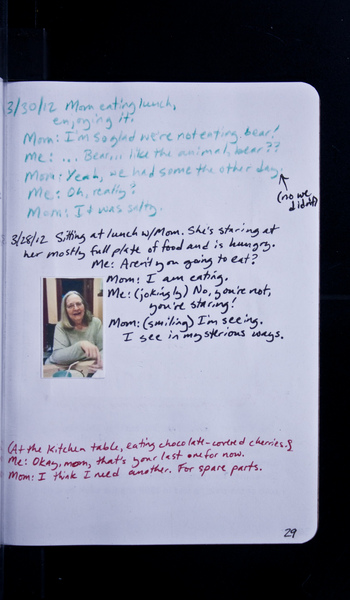 3/30/12 Mom eating lunch,
enjoying it.
Mom: I'm so glad we're not eating bear!
Me: ... Bear... like the animal, bear??
Mom: Yeah, we had some the other day.
(no we didn't)
Me: Oh, really?
Mom: It was salty.
3/28/12 Sitting at lunch w/Mom. She's staring at
her mostly full plate of food and is hungry.
Me: Aren't you going to eat?
Mom: I am eating.
Me: (jokingly) No, you're not,
you're staring!
Mom: (smiling) I'm seeing.
I see in mysterious ways.
(At the kitchen table, eating chocolate-covered cherries.)
Me: Okay, mom, that's your last one for now.
Mom: I think I need another. For spare parts.
29